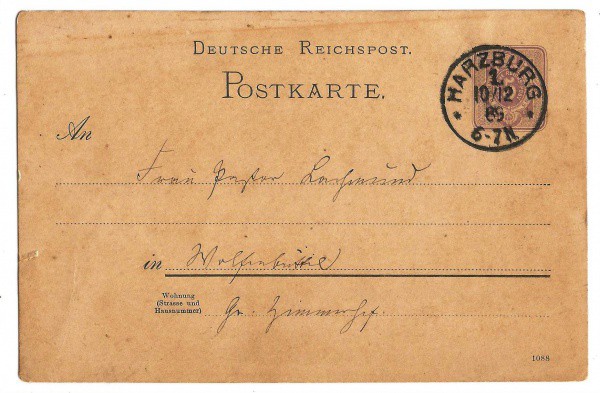 DEUTSCHE REICHSPOST.
POSTKARTE.
HARZBURG
1
10/12
89
6-7N.
An
Frau Pastor Lachmund
in Wolfenbüttel
Wohnung
(Strasse und
Hausnummer)
Gr. Zimmerhof.
1088